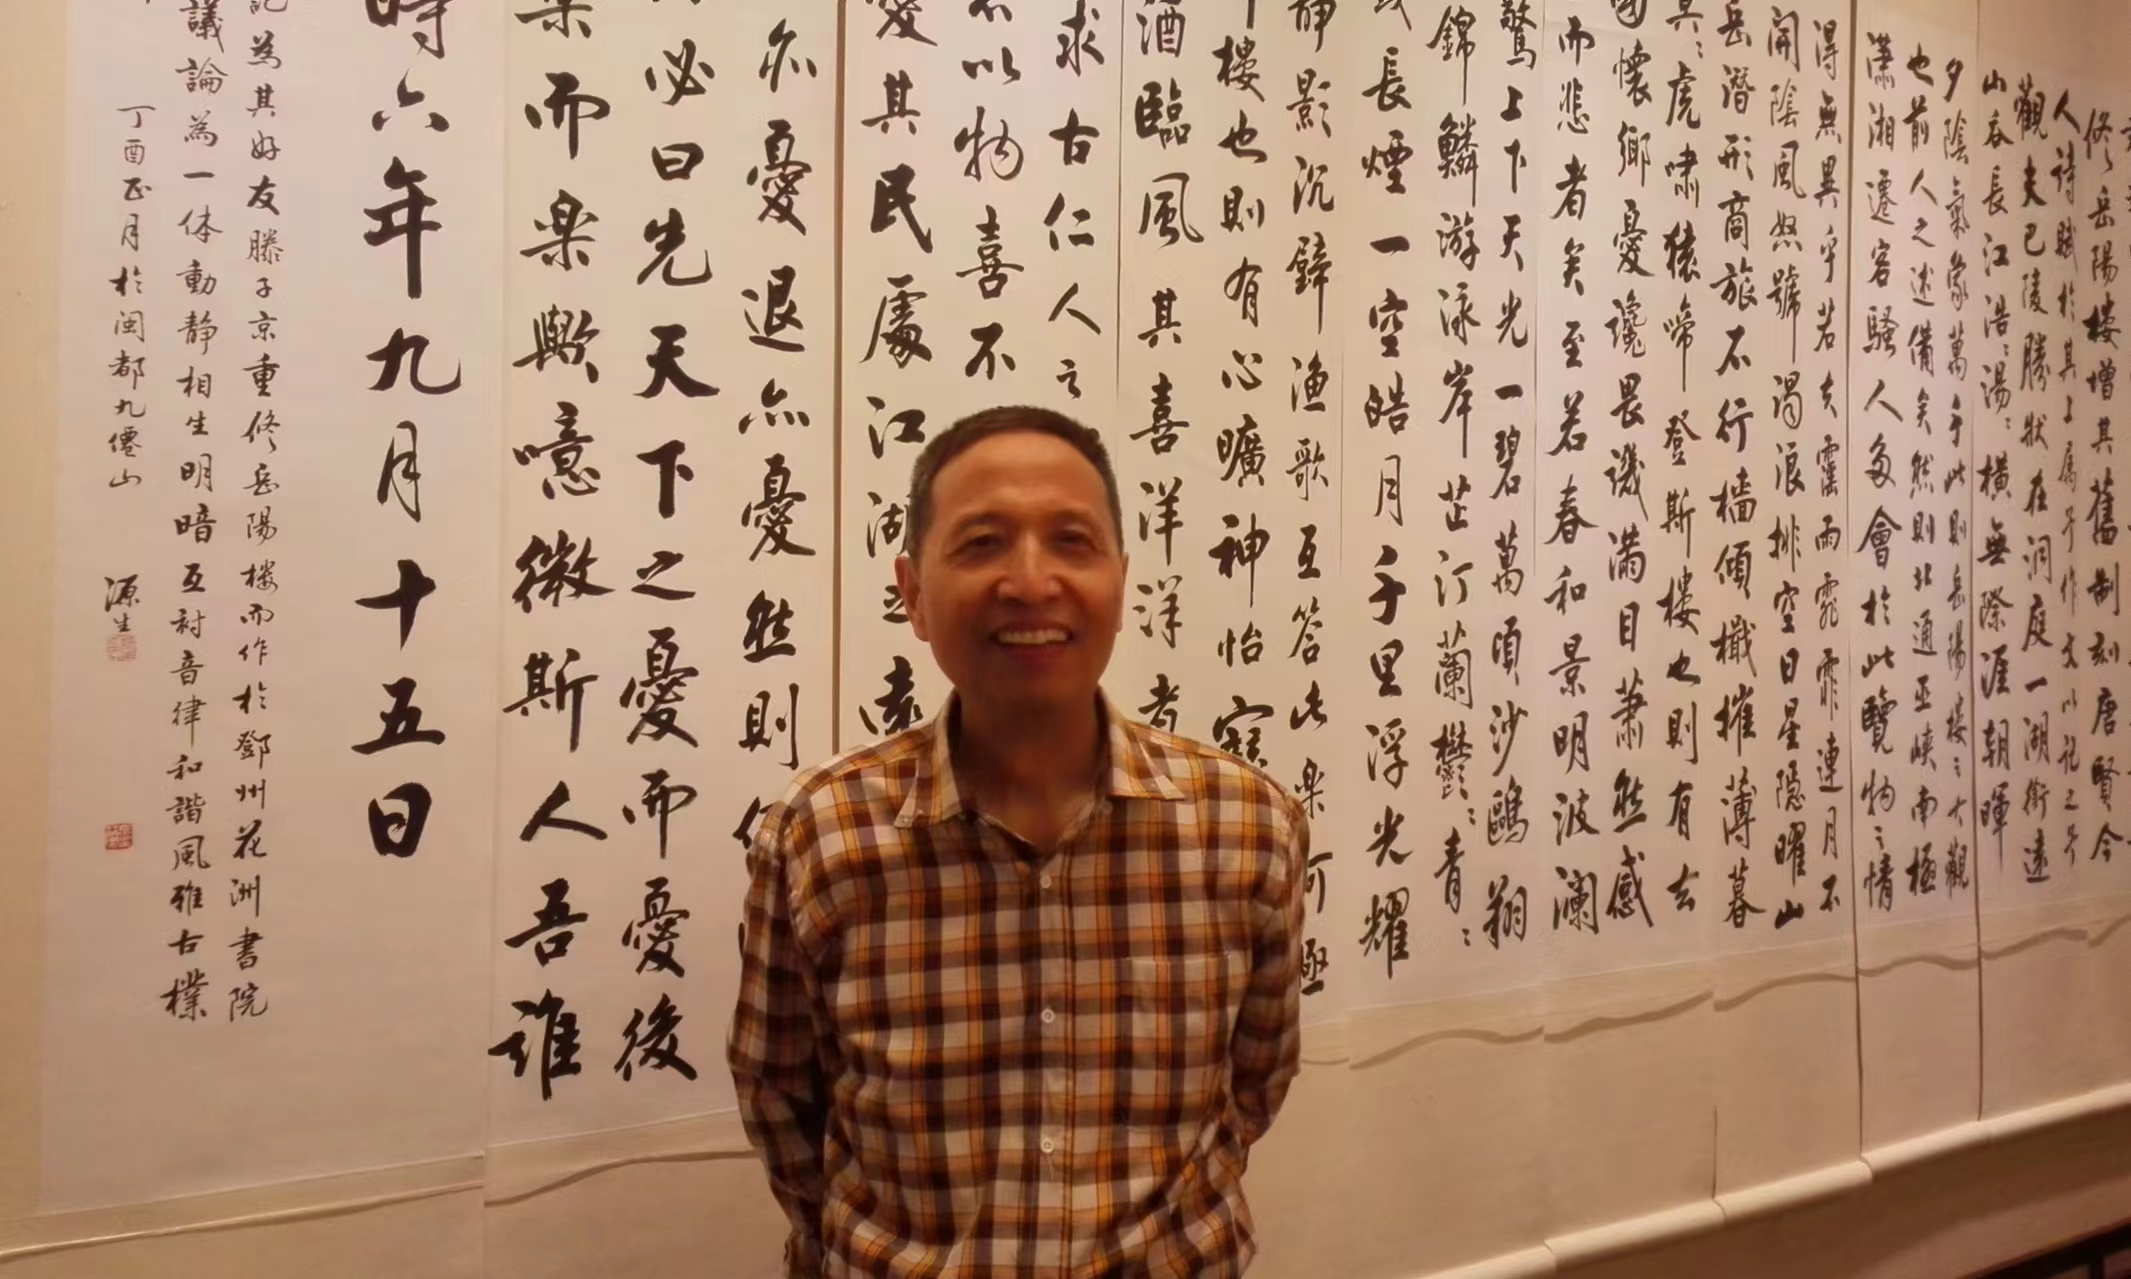 修岳陽樓增其舊制刻唐賢今
人詩賦於其上属予作文以記之予
觀夫巴陵勝狀在洞庭一湖銜遠
山吞長江浩〻湯〻橫無際涯朝暉
夕陰氣象萬千此則岳陽楼之大觀
也前人之述備矣然則北通巫峽南極
瀟湘遷客騷人多會於此覽物之情
得無異乎若夫霪雨霏霏連月不
開陰風怒號濁浪排空日星隱曜山
岳潛形商旅不行檣傾檝摧薄暮
冥〻虎嘯猿啼登斯樓也則有去
國懷鄉憂讒畏譏滿目蕭然感
而悲者矣至若春和景明波瀾
驚上下天光一碧萬頃沙鷗翔
錦鱗游泳岸芷汀蘭鬱〻青〻
長煙一空皓月千里浮光耀
靜影沉璧漁歌互答此樂何極
樓也則有心曠神怡寵
酒臨風其喜洋洋者
求古仁人之
不以物喜不
憂其民處江湖之遠
亦憂退亦憂然則
必曰先天下之憂而憂後
樂而樂歟噫微斯人吾誰
時六年九月十五日
記為其好友滕子京重修岳陽楼而作於鄧州花洲書院
議論為一体動靜相生明暗互衬音律和諧風雅古樸
丁酉正月於闽都九僊山
源生